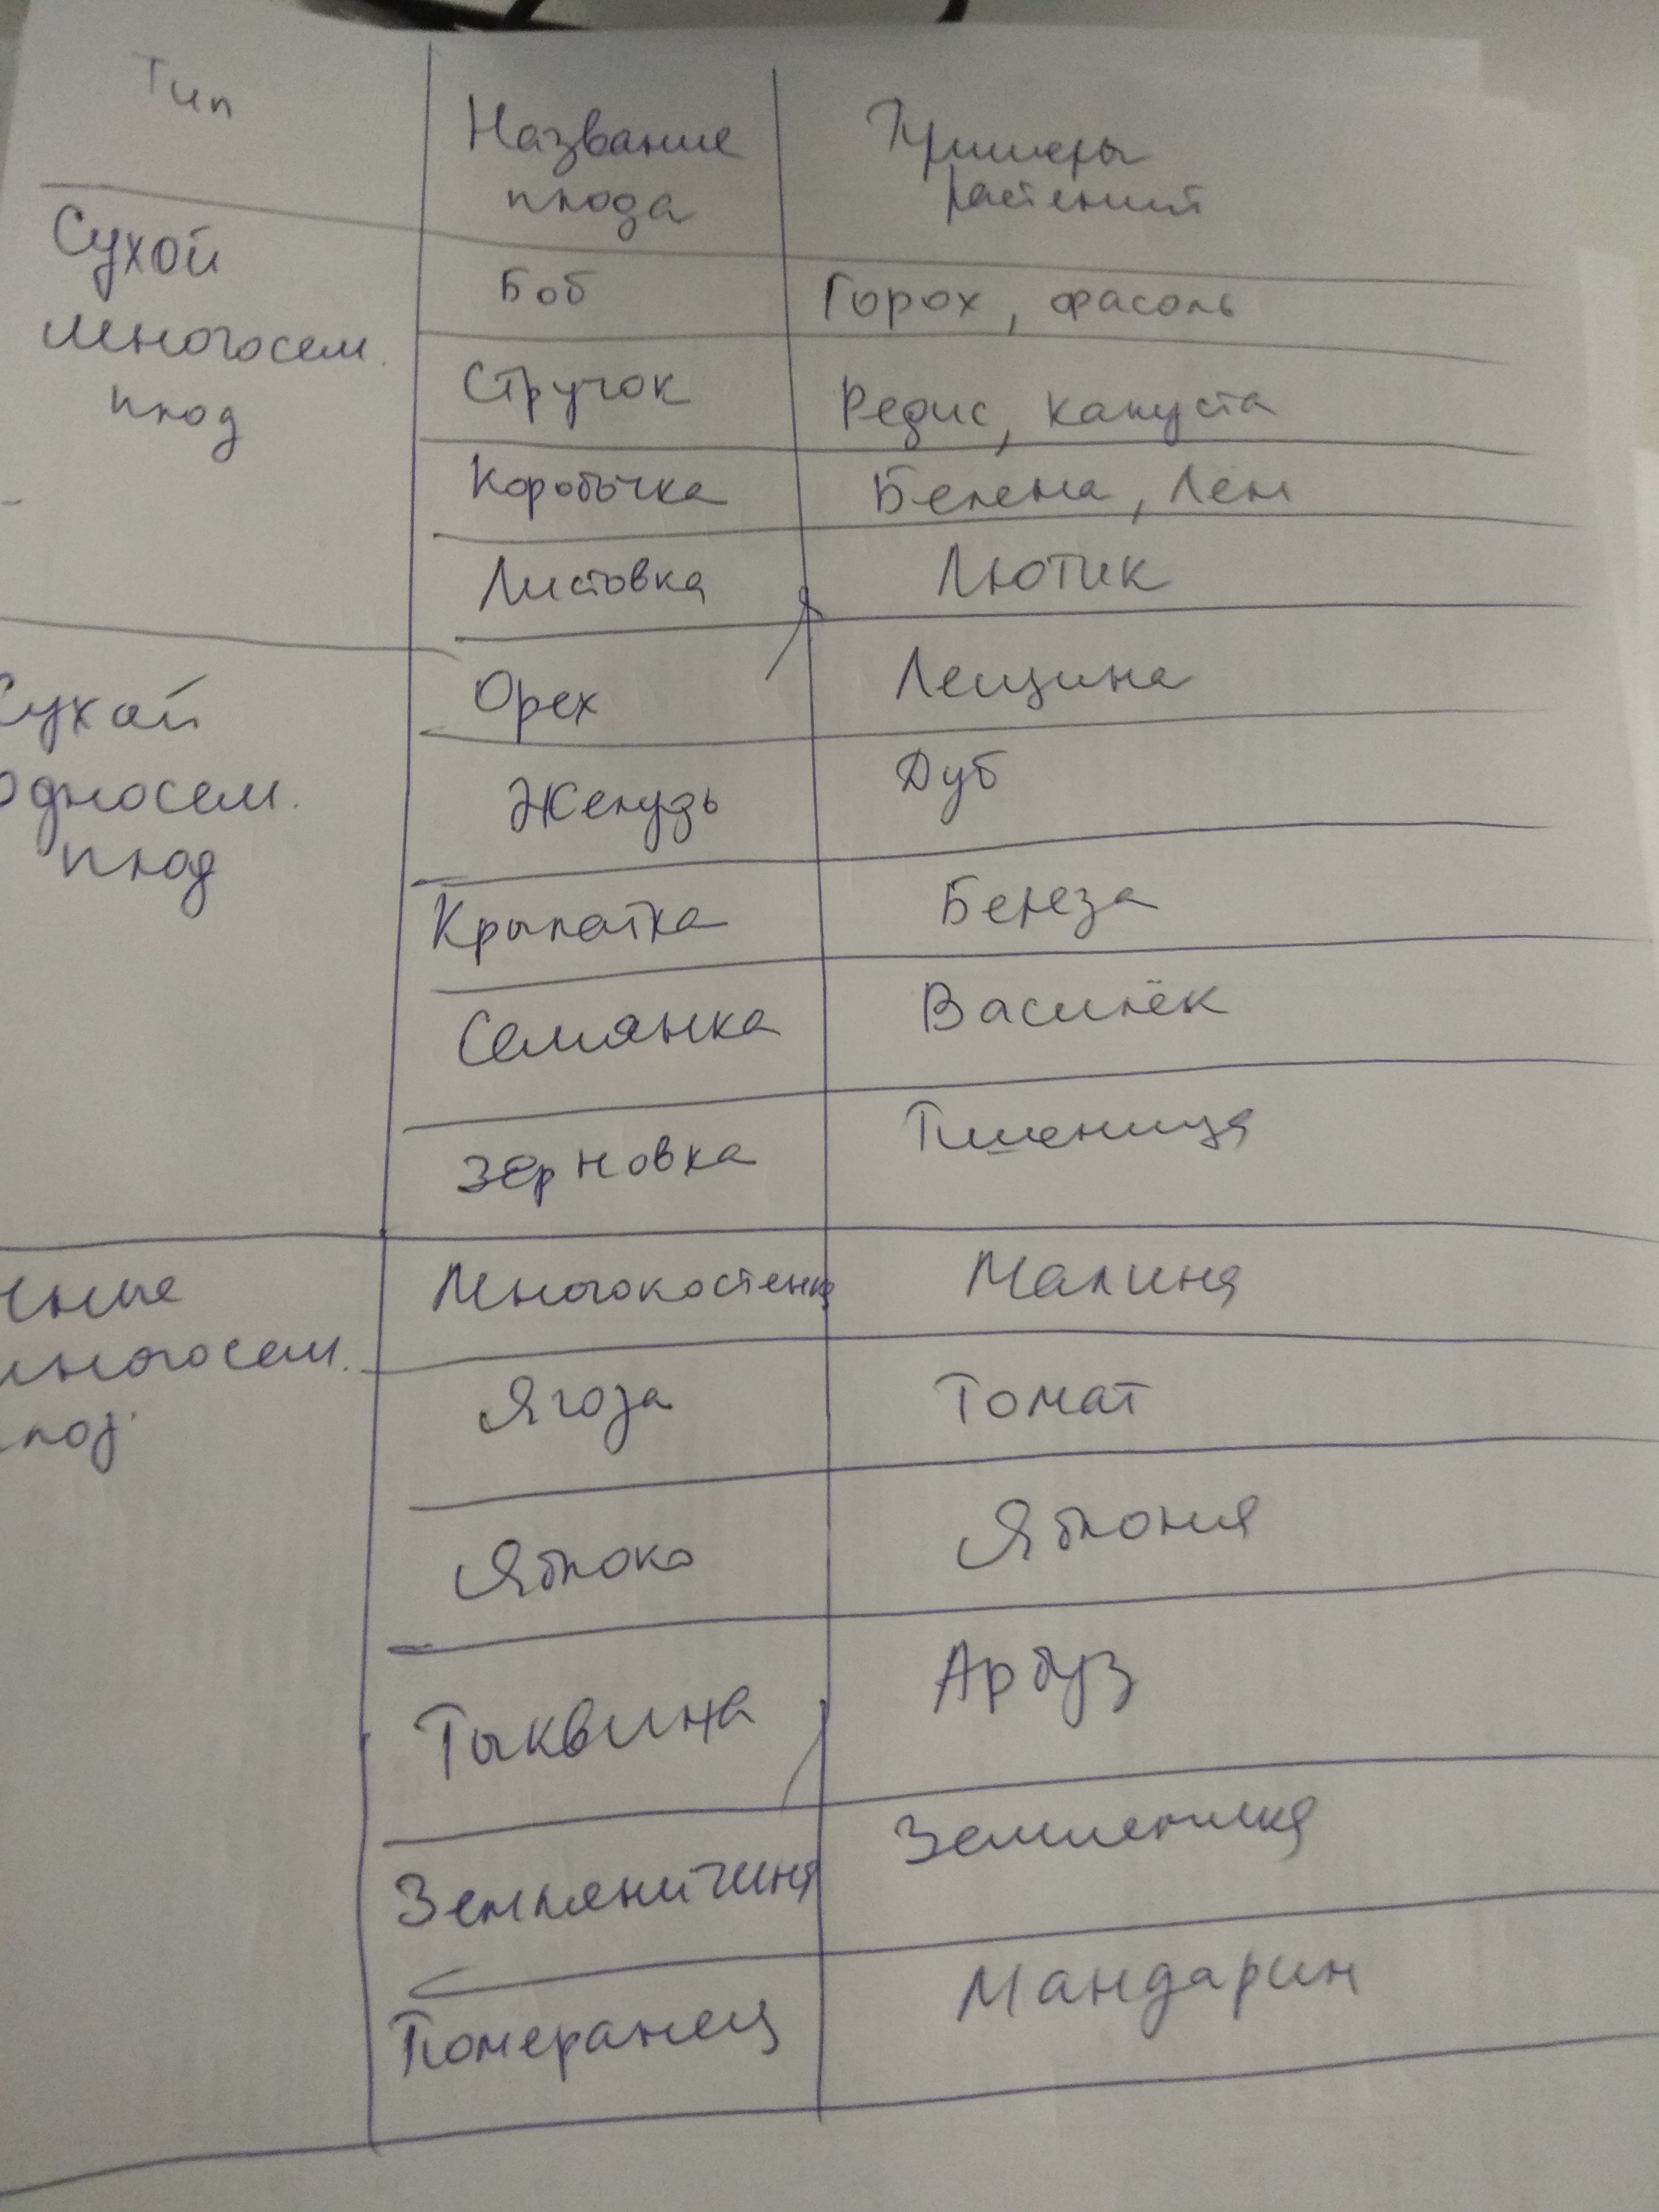 Тип
Название
плода
Примеры
растений
Сухой
многосем.
плод
Боб
Горох, фасоль
Стручок
Редис, капуста
Коробочка
Белена, Лён
Листовка
Лютик
Сухой
односем.
плод
Орех
Лещина
Желудь
Дуб
Крылатка
Береза
Семянка
Василёк
Зерновка
Пшеница
чные
многосем.
плод.
Многокостянка
Малина
Ягода
Томат
Яблоко
Яблоня
Тыквина
Арбуз
Земляничина
Земляника
Померанец
Мандарин